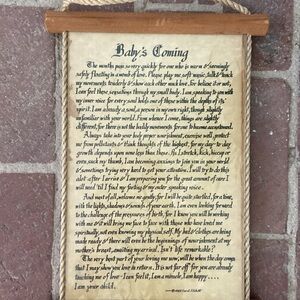 Baby's Coming
The months pass so very quickly for one who is warm & seemingly
safely floating in a womb of love. Please play me soft music, talk & touch
my movements tenderly & show each other much love, for believe it or not,
I can feel these, sensations through my small body. I am speaking to you with
my inner voice for every soul holds one of those within the depths of it's
spirit. I am already a soul, a person in my own right, though slightly
unfamiliar with your world. From whence I come, things are slightly
different, for there is not the bodily movements for me to become accustomed.
Always take into your body proper nourishment, exercise well, protect
me from pollutants & think thoughts of the highest, for my day-to-day
growth depends upon some less than these. As I stretch, kick, hiccup or
even suck my thumb, I am becoming anxious to join you in your world
& sometimes trying very hard to get your attention. I will try to do this
alot after I arrive! I am preparing you for the great amount of care I
will need 'til I find my footing & my outer speaking voice.
And most of all, welcome me gently, for I will be quite startled, at first,
with the lights, shadows & sounds of your earth. I am even looking forward
to the challenge of the pressures of birth, for I know you will be working
with me & will bring me face to face with those who have loved me
spiritually, not even knowing my physical self. My bed & clothes are being
made ready & there will even be the beginnings of nourishment at my
mother's breast, awaiting my arrival. Isn't life remarkable?
The very best part of your loving me now, will be when the day comes
that I may show you love in return. It is not far off for you are already
teaching me of love - I can feel it, I am a miracle, I am happy....
I am your child.